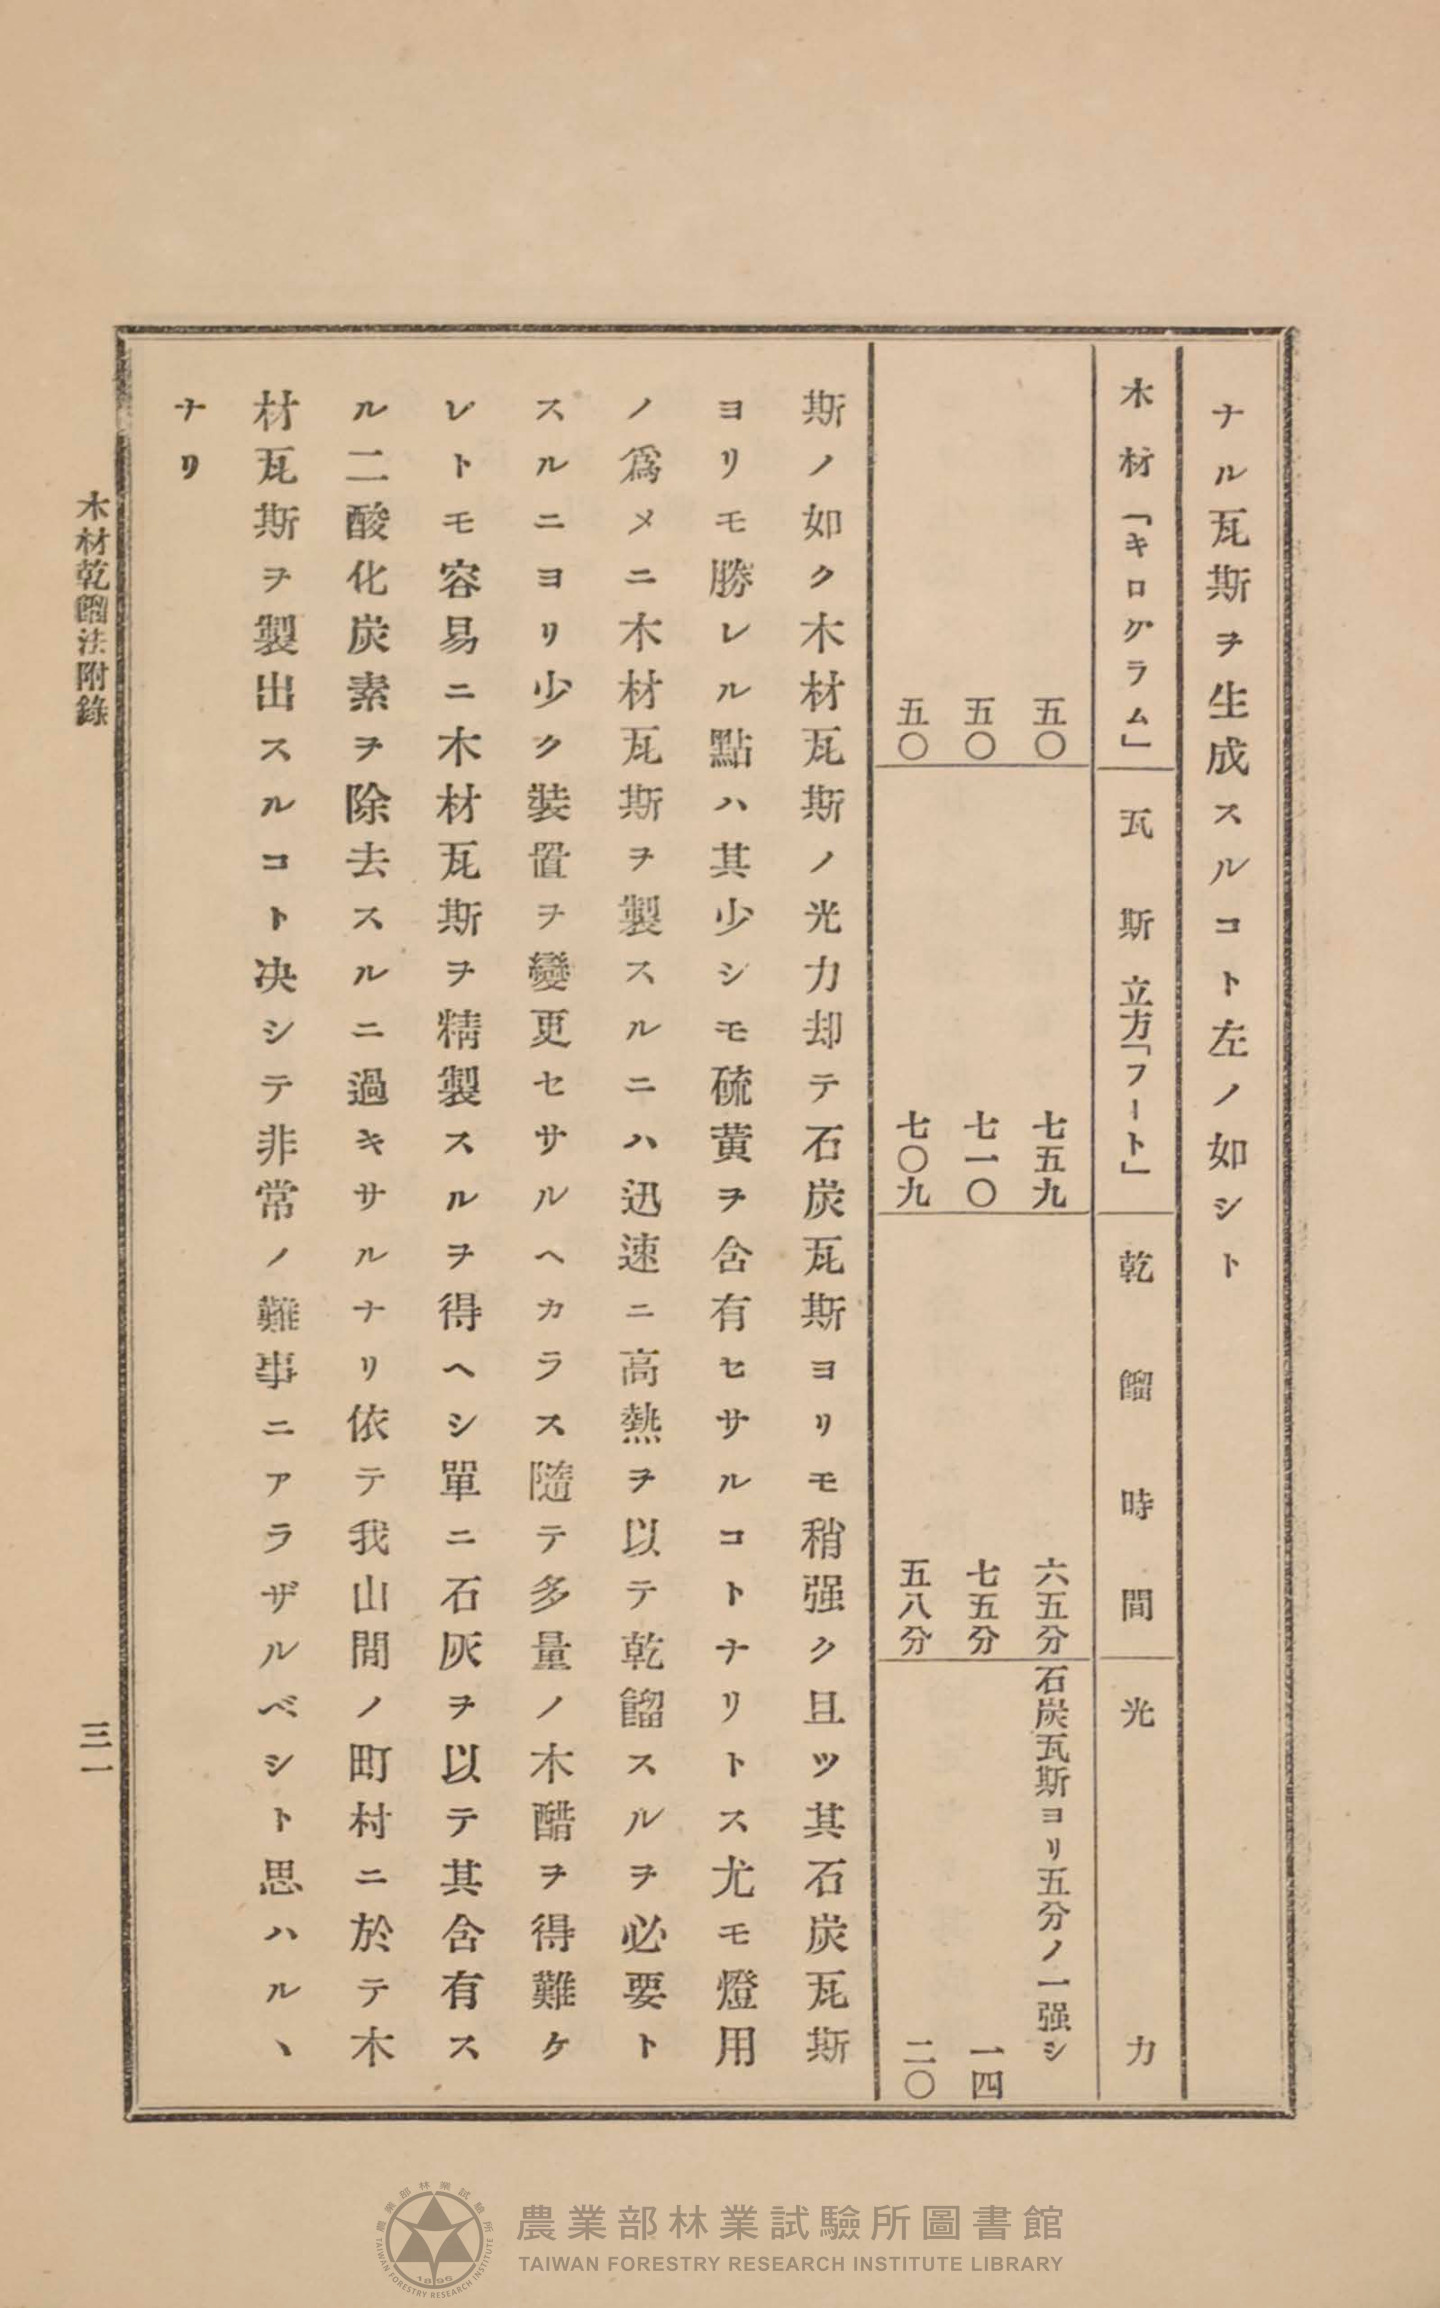 ナル瓦斯ヲ生成スルコト左ノ如シト
木材「キログラム」 瓦斯立方「フート」 乾餾時間 光力
五〇 七五九 六五分 石炭瓦斯ヨリ五分ノ一强シ
五〇 七一〇 七五分 一四
五〇 七〇九 五八分 二〇
斯ノ如ク木材瓦斯ノ光力却テ石炭瓦斯ヨリモ稍强ク且ツ其石炭瓦斯
ヨリモ勝レル點ハ其少シモ硫黄ヲ含有セサルコトナリトス尤モ燈用
ノ爲メニ木材瓦斯ヲ製スルニハ迅速ニ高熱ヲ以テ乾餾スルヲ必要ト
スルニヨリ少ク裝置ヲ變更セサルヘカラス隨テ多量ノ木醋ヲ得難ケ
レトモ容易ニ木材瓦斯ヲ精製スルヲ得ヘシ單ニ石灰ヲ以テ其含有ス
ル二酸化炭素ヲ除去スルニ過キサルナリ依テ我山間ノ町村ニ於テ木
材瓦斯ヲ製出スルコト决シテ非常ノ難事ニアラザルベシト思ハルヽ
ナリ
木材乾餾法附錄
三一
農業部林業試驗所圖書館
TAIWAN FORESTRY RESEARCH INSTITUTE LIBRARY
農業部林業試驗所
TAIWAN FORESTRY RESEARCH INSTITUTE
1896